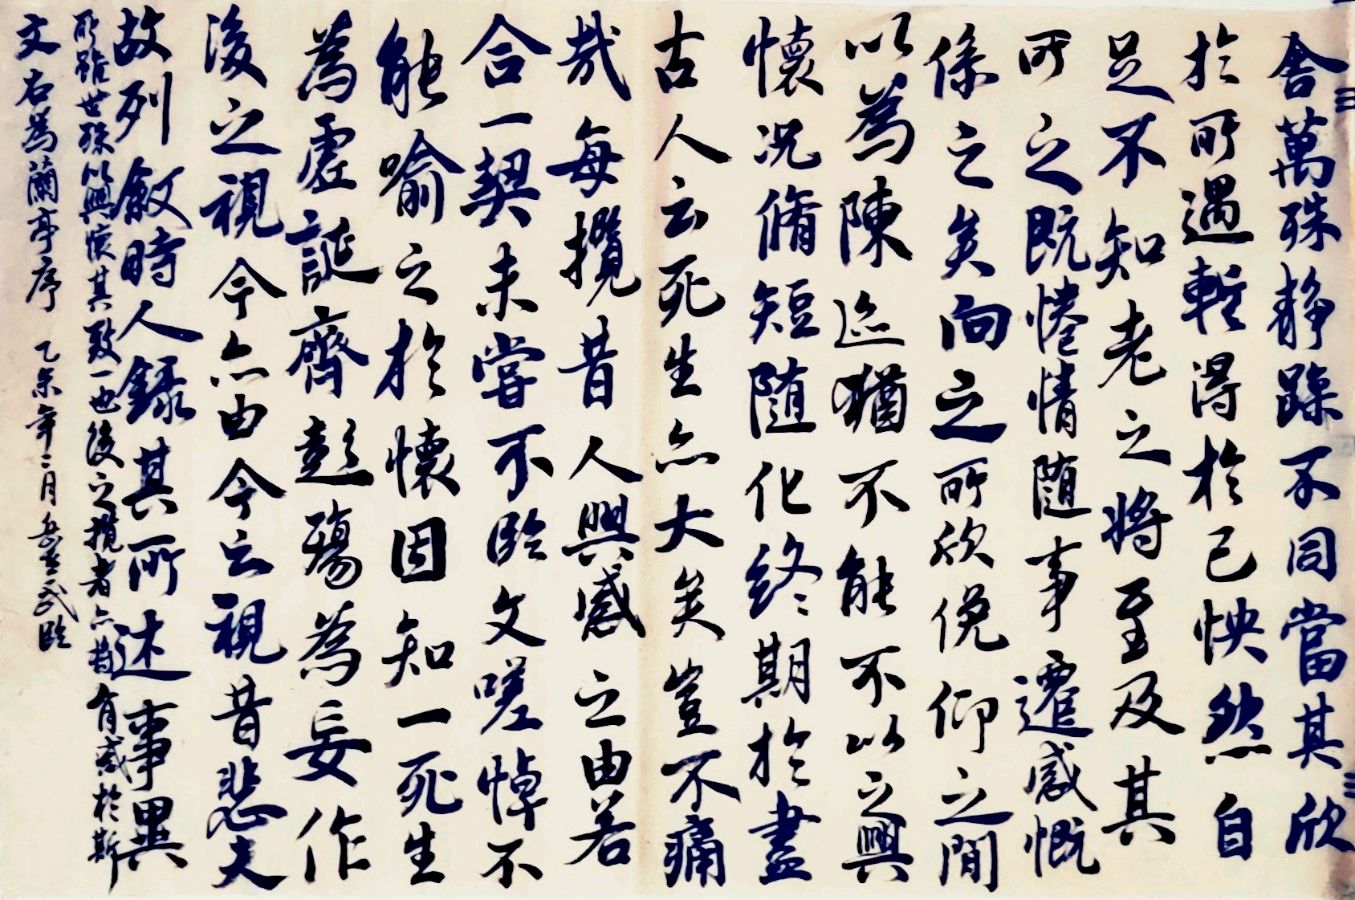 舍萬殊靜躁不同當其欣
於所遇暫得於己怏然自
足不知老之將至及其
所之既惓情隨事遷感慨
係之矣向之所欣俛仰之間
以為陳迹猶不能不以之興
懷況脩短隨化終期於盡
古人云死生亦大矣豈不痛
哉每攬昔人興感之由若
合一契未嘗不臨文嗟悼不
能喻之於懷固知一死生
為虛誕齊彭殤為妄作
後之視今亦由今之視昔悲夫
故列敘時人錄其所述事異
所雖世殊以興懷其致一也後之攬者亦將有感於斯
文 右為蘭亭序 乙未年二月 武臨